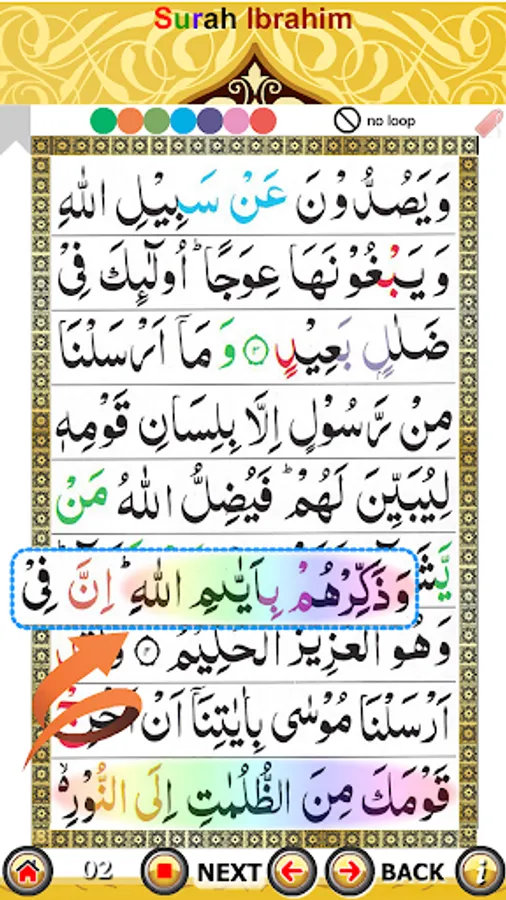 Surah Ibrahim
no loop
وَيَصُدُّوْنَ عَنْ سَبِيْلِ اللّٰهِ
وَيَبْغُوْنَهَا عِوَجًا ؕ اُولٰٓئِكَ فِىْ
ضَلٰلٍۭ بَعِيْدٍ ۝۳ وَ مَاۤ اَرْسَلْنَا
مِنْ رَّسُوْلٍ اِلَّا بِلِسَانِ قَوْمِهٖ
لِيُبَيِّنَ لَهُمْ ؕ فَيُضِلُّ اللّٰهُ مَنْ
وَذَكِّرْهُمْ بِاَيّٰٮمِ اللّٰهِ ؕ اِنَّ فِىْ
وَهُوَ الْعَزِيْزُ الْحَكِيْمُ ۝۴
اَرْسَلْنَا مُوْسٰى بِاٰيٰتِنَاۤ اَنْ اَخْرِجْ
قَوْمَكَ مِنَ الظُّلُمٰتِ اِلَى النُّوْرِ ۙ
02 NEXT BACK i